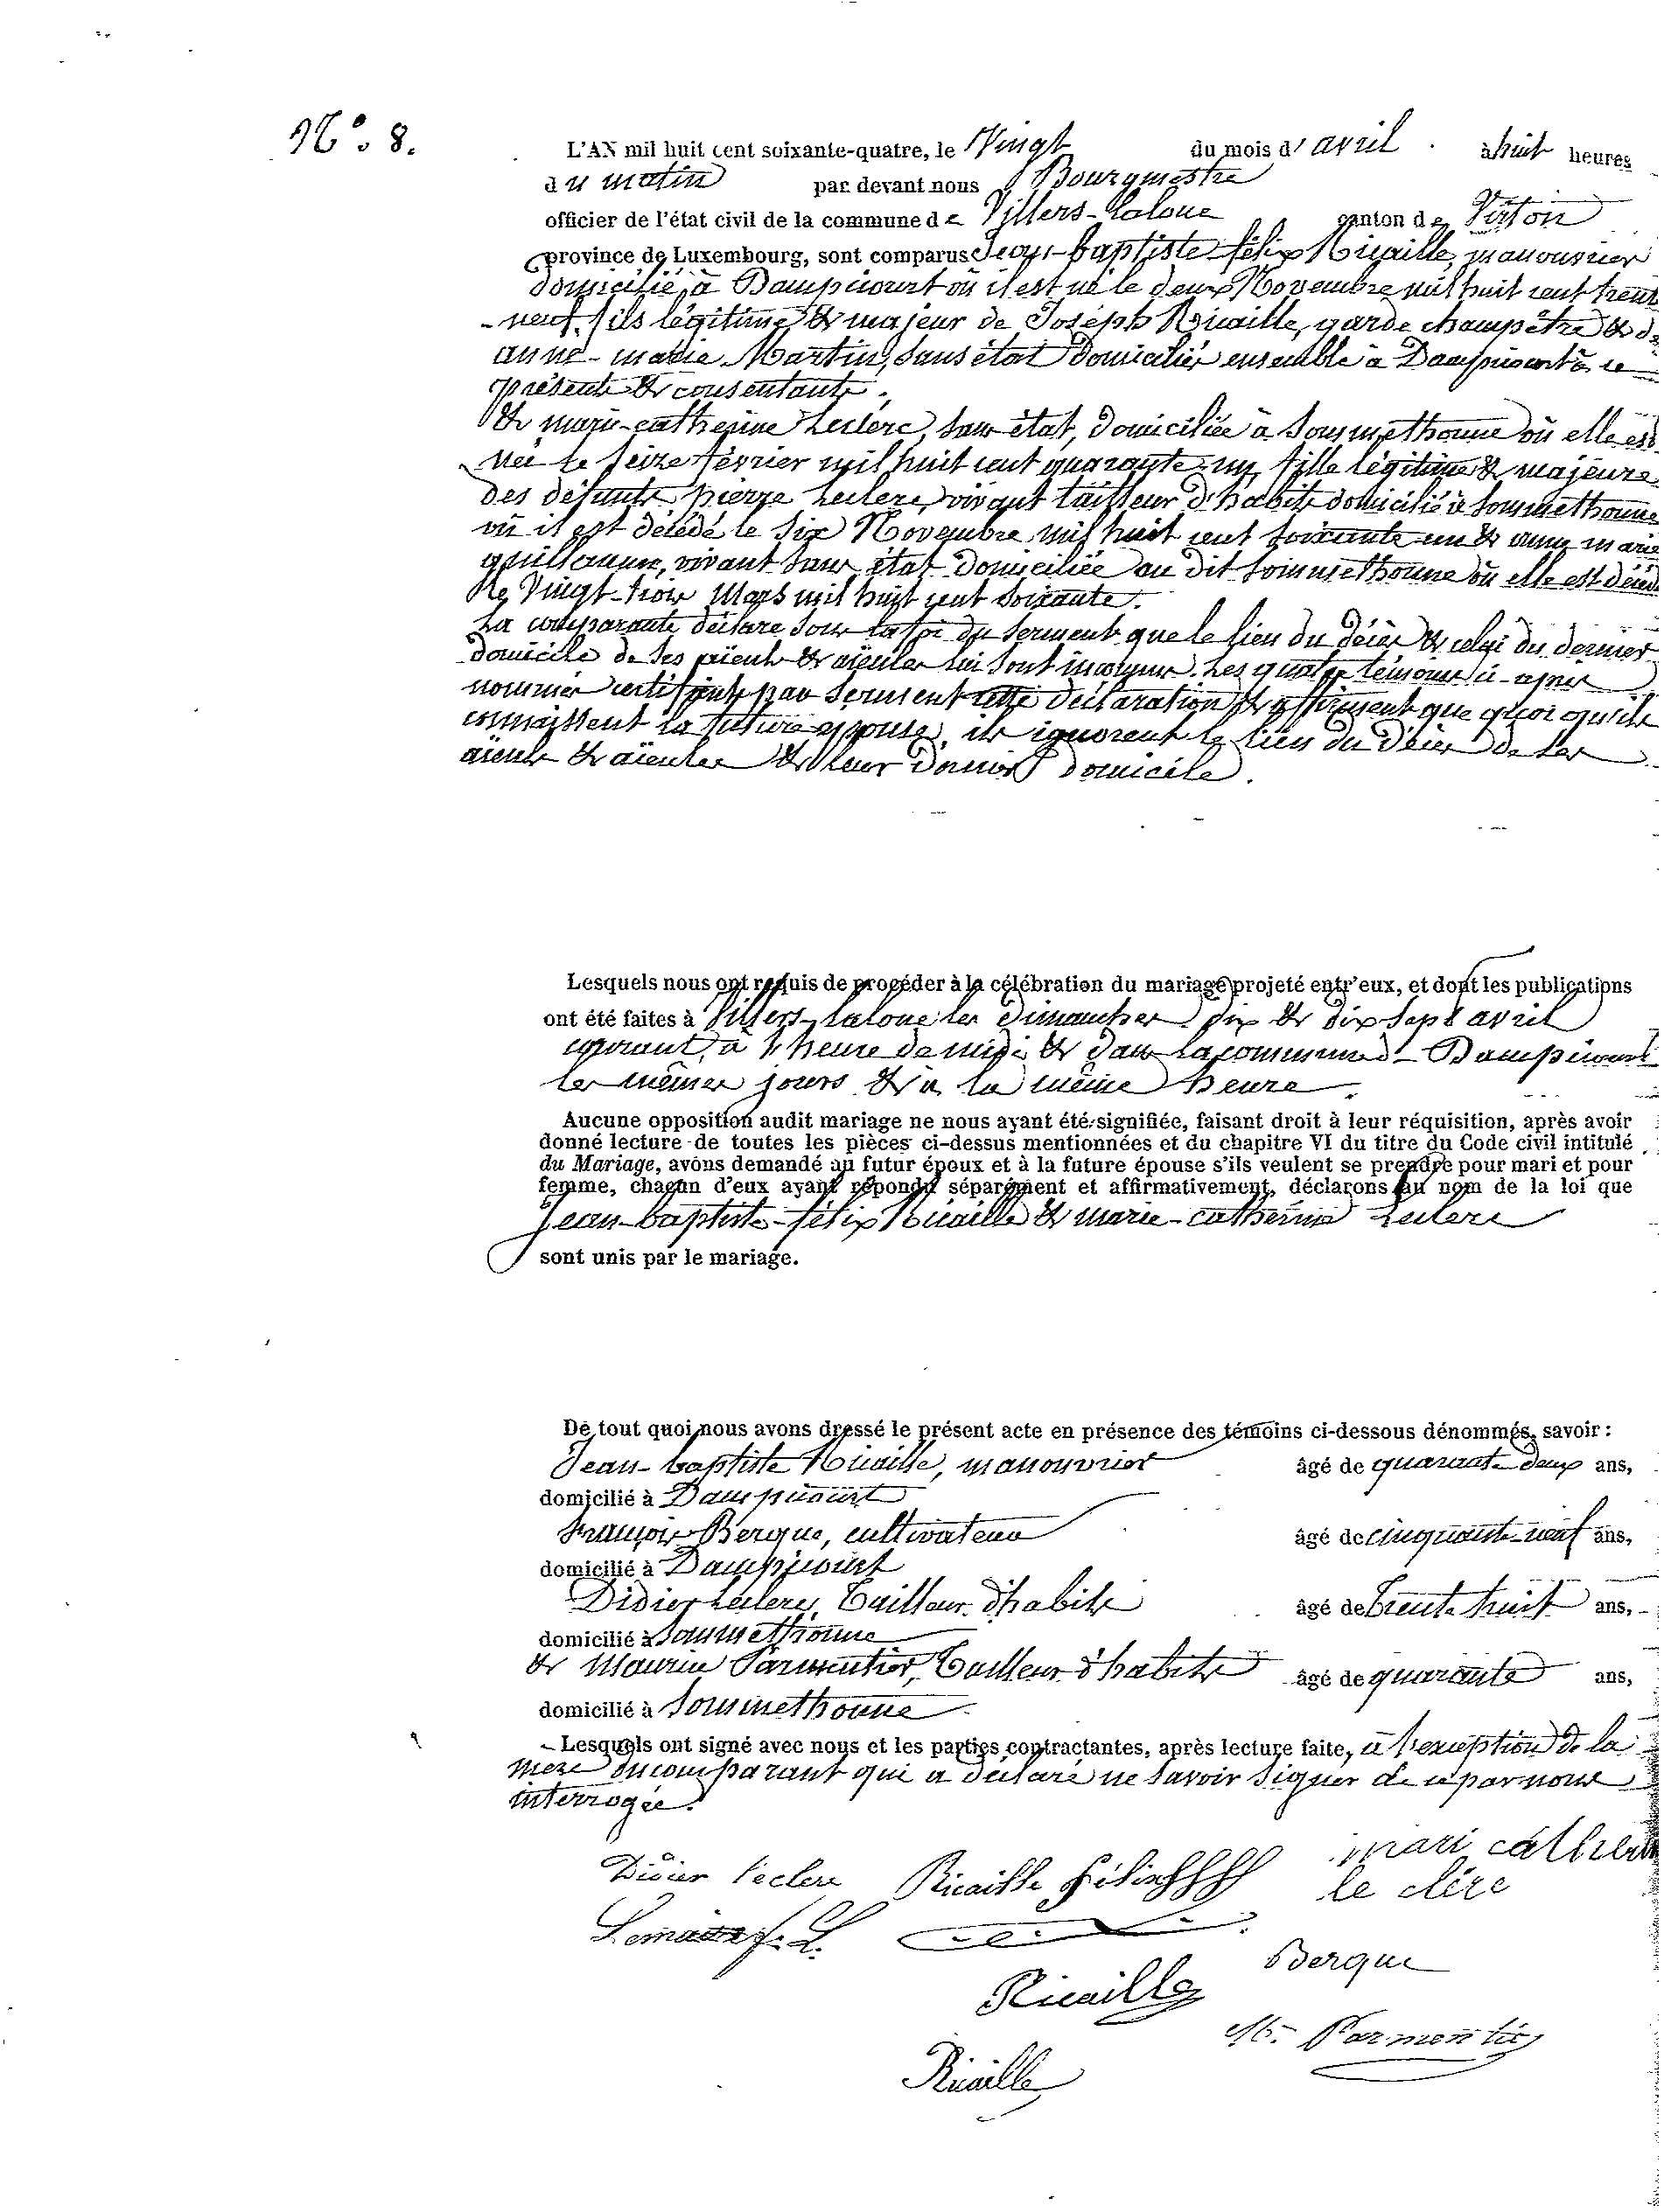 N° 8.
L'AN mil huit cent soixante-quatre, le Vingt du mois d'avril à huit heures
du matin par devant nous Bourgmestre
officier de l'état civil de la commune de Villers-laloue canton de Virton
province de Luxembourg, sont comparus Jean-baptiste-félix Ricaille, manouvrier
domicilié à Dampicourt où il est né le deux Novembre mil huit cent trente
-neuf, fils légitime & majeur de Joseph Ricaille, garde champêtre & d
anne-marie Martin, sans état domiciliés ensemble à Dampicourt à ce
présents & consentants.
& marie-catherine Leclerc, sans état, domiciliée à Sommethonne où elle est
née le seize février mil huit cent quarante-un, fille légitime & majeure
des défunts pierre Leclerc, vivant tailleur d'habits domicilié à Sommethonne
où il est décédé le six Novembre mil huit cent soixante-un & anne marie
guillaume, vivant sans état domiciliée au dit Sommethonne où elle est décéd
le Vingt-trois Mars mil huit cent soixante.
La comparante déclare sous la foi du serment que le lieu du décès & celui du dernier
domicile de ses aïeuls & aïeules lui sont inconnus. Les quatre témoins ci-après
nommés certifient par serment cette déclaration & affirment que quoiqu'ils
connaissent la future épouse, ils ignorent le lieu du décès de ses
aïeuls & aïeules & leur dernier domicile.
Lesquels nous ont requis de procéder à la célébration du mariage projeté entr'eux, et dont les publications
ont été faites à Villers-laloue les Dimanches dix & dix sept avril
courant, à l'heure de midi & dans la commune d- Dampicourt
les mêmes jours & à la même heure.
Aucune opposition audit mariage ne nous ayant été signifiée, faisant droit à leur réquisition, après avoir
donné lecture de toutes les pièces ci-dessus mentionnées et du chapitre VI du titre du Code civil intitulé
du Mariage, avons demandé au futur époux et à la future épouse s'ils veulent se prendre pour mari et pour
femme, chacun d'eux ayant répondu séparément et affirmativement, déclarons au nom de la loi que
Jean-baptiste-félix Ricaille & marie-catherine Leclerc
sont unis par le mariage.
De tout quoi nous avons dressé le présent acte en présence des témoins ci-dessous dénommés, savoir :
Jean-baptiste Ricaille, manouvrier âgé de quarante-deux ans,
domicilié à Dampicourt
françois Berque, cultivateur âgé de cinquante-neuf ans,
domicilié à Dampicourt
Didier Leclerc, Tailleur d'habits âgé de Trente huit ans,
domicilié à Sommethonne
& Maurice Parmentier, Tailleur d'habits âgé de quarante ans,
domicilié à Sommethonne
Lesquels ont signé avec nous et les parties contractantes, après lecture faite, à l'exception de la
mère du comparant qui a déclaré ne savoir signer de ce par nous
interrogée.
Didier leclerc Ricaille félix mari catherin
le clerc
Berque
Ricaille
M. Parmentier
Ricaille